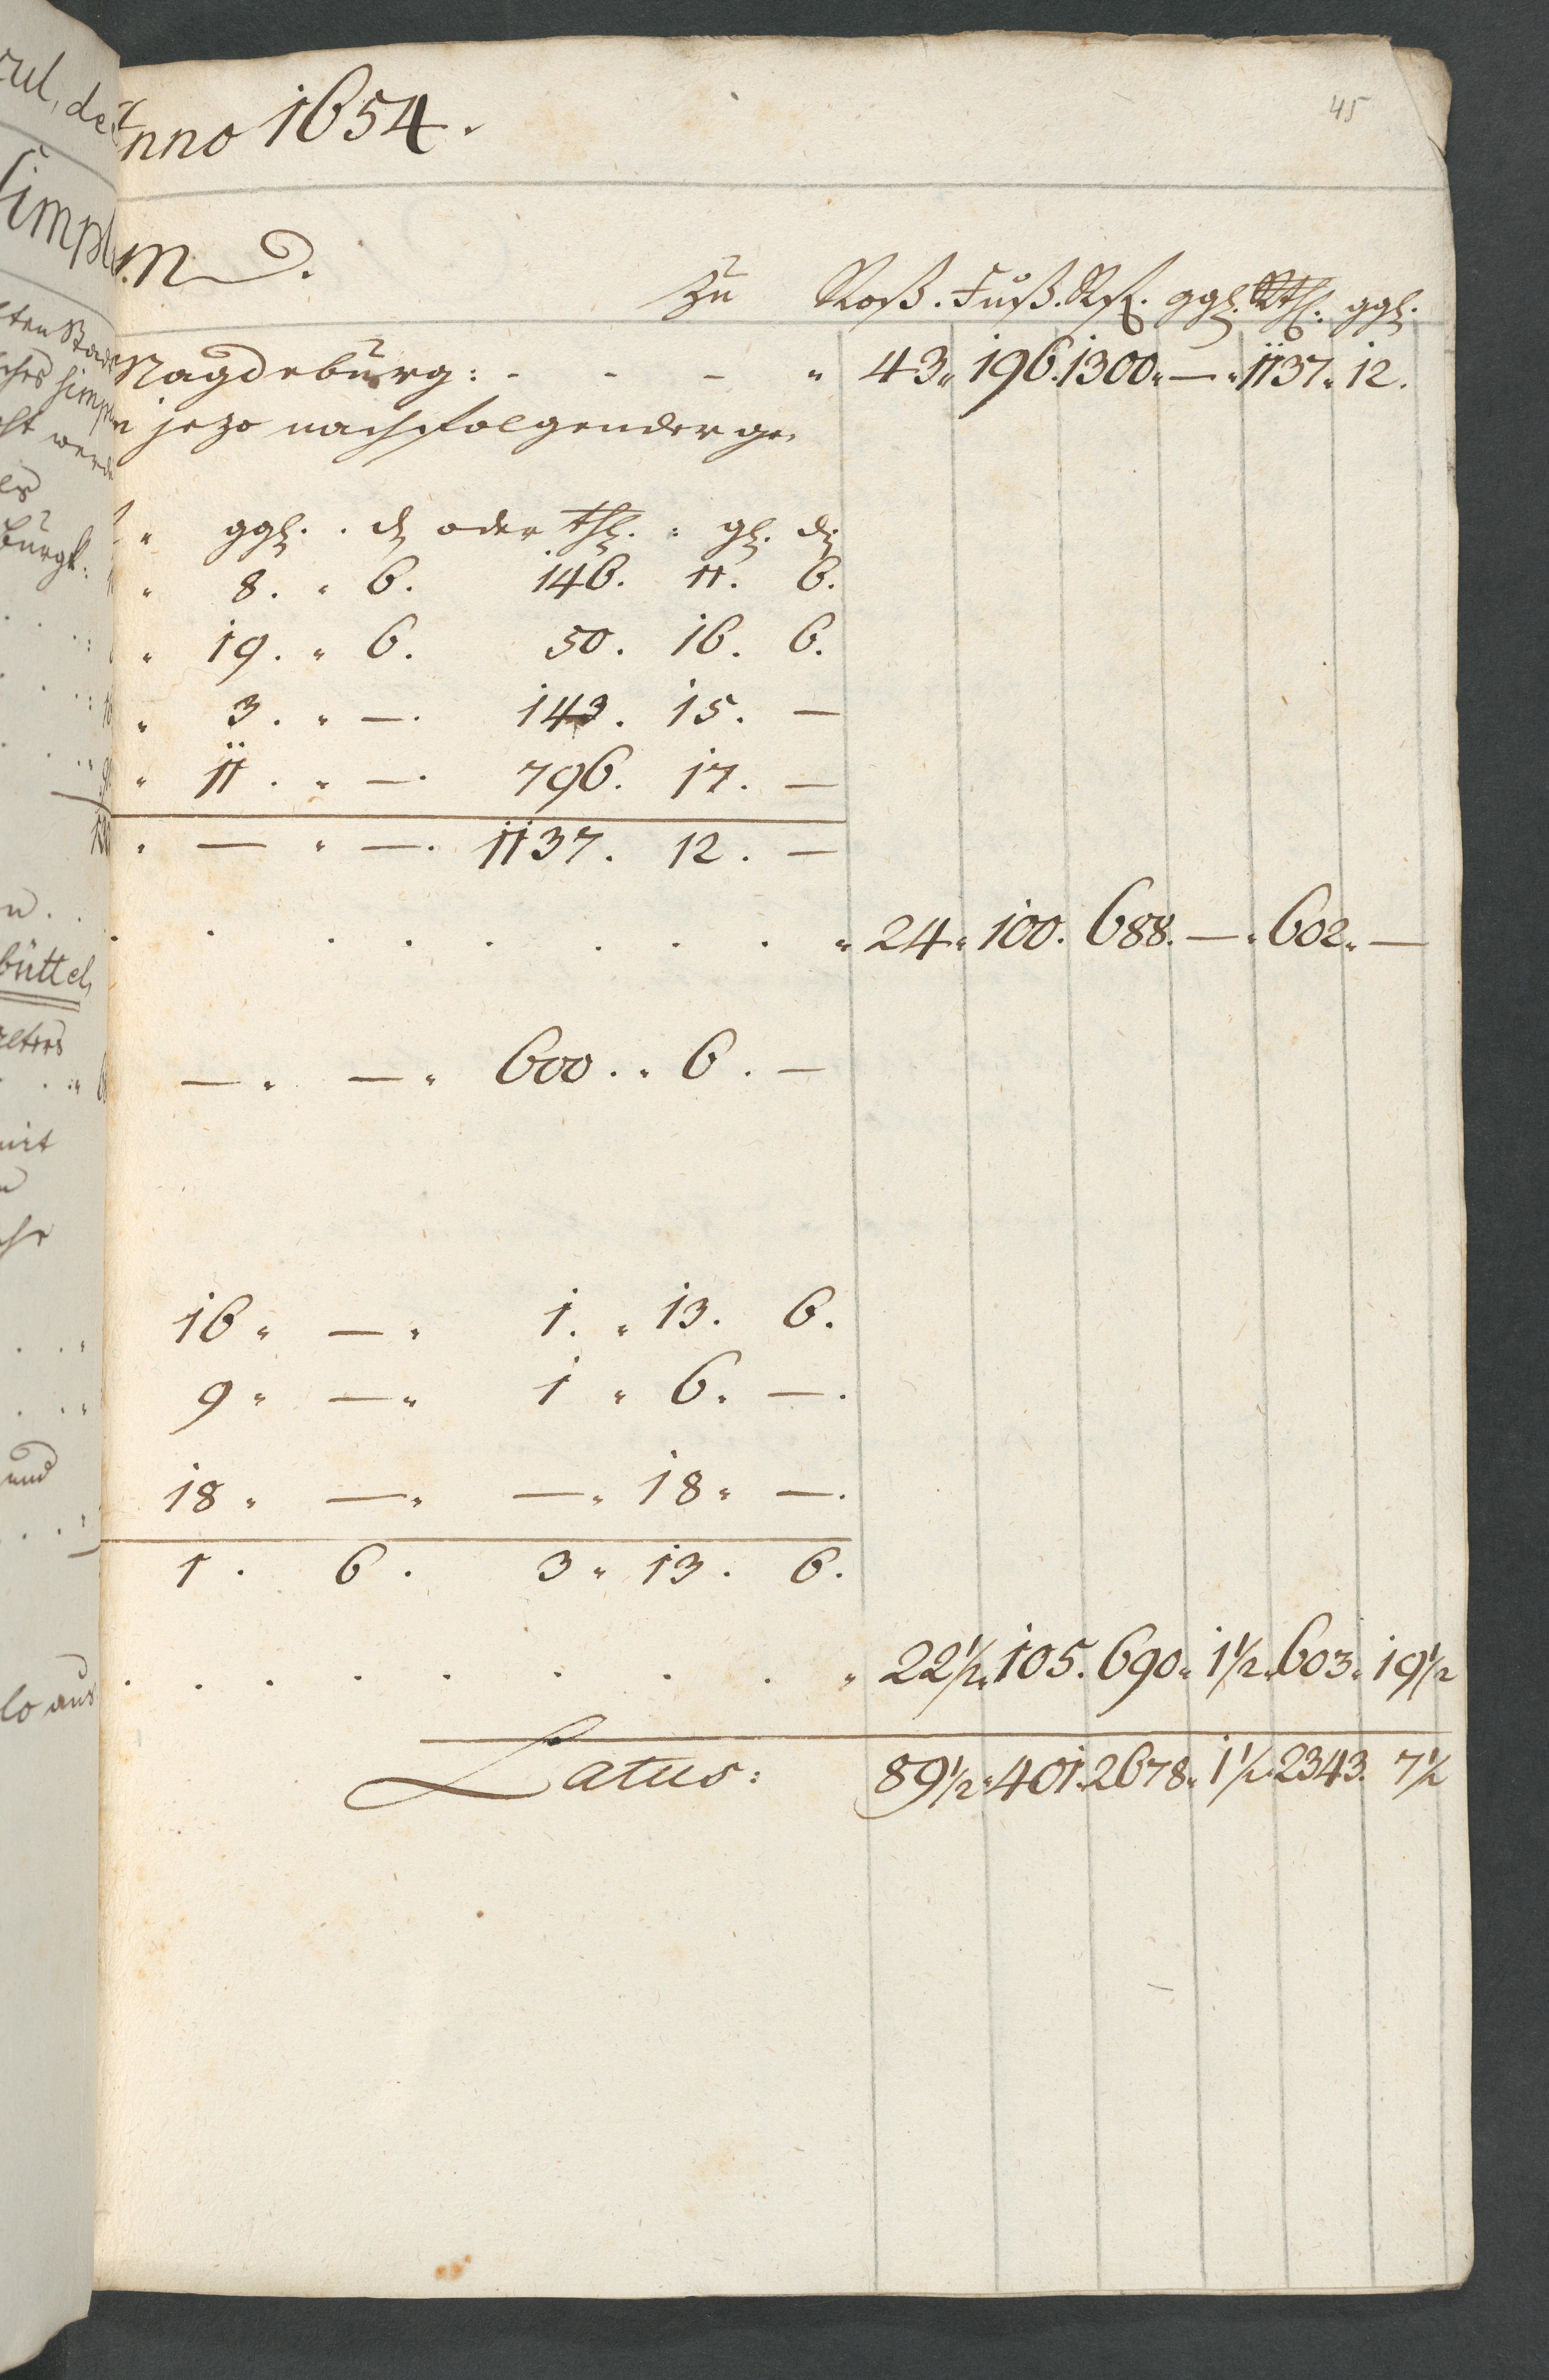 45
Anno 1654.
M D.
zu Roß. Fuß. Rfl. ggl. Rthl. ggl.
Magdeburg: - - - " 43 " 196. 1300 " — " 1137 " 12.
jezo nachfolgender ge
" ggl. . d oder thl. : gl. d
" 8. " 6. 146. 11. 6.
" 19. " 6. 50. 16. 6.
" 3. " —. 143. 15. —
" 11. " —. 796. 17. —
" — " —. 1137. 12. —
. . . . . . . . " 24 " 100. 688. — " 602 " —
— " — " 600. " 6. —
16 " — " 1. " 13. 6.
9 " — " 1 " 6. —.
18 " — " — " 18 " —.
1. 6. 3 " 13. 6.
. . . . . . . " 22½ " 105. 690 " 1½ " 603 " 19½
Latus: 89½ " 401. 2678 " 1½. 2343. 7½
büttel
und